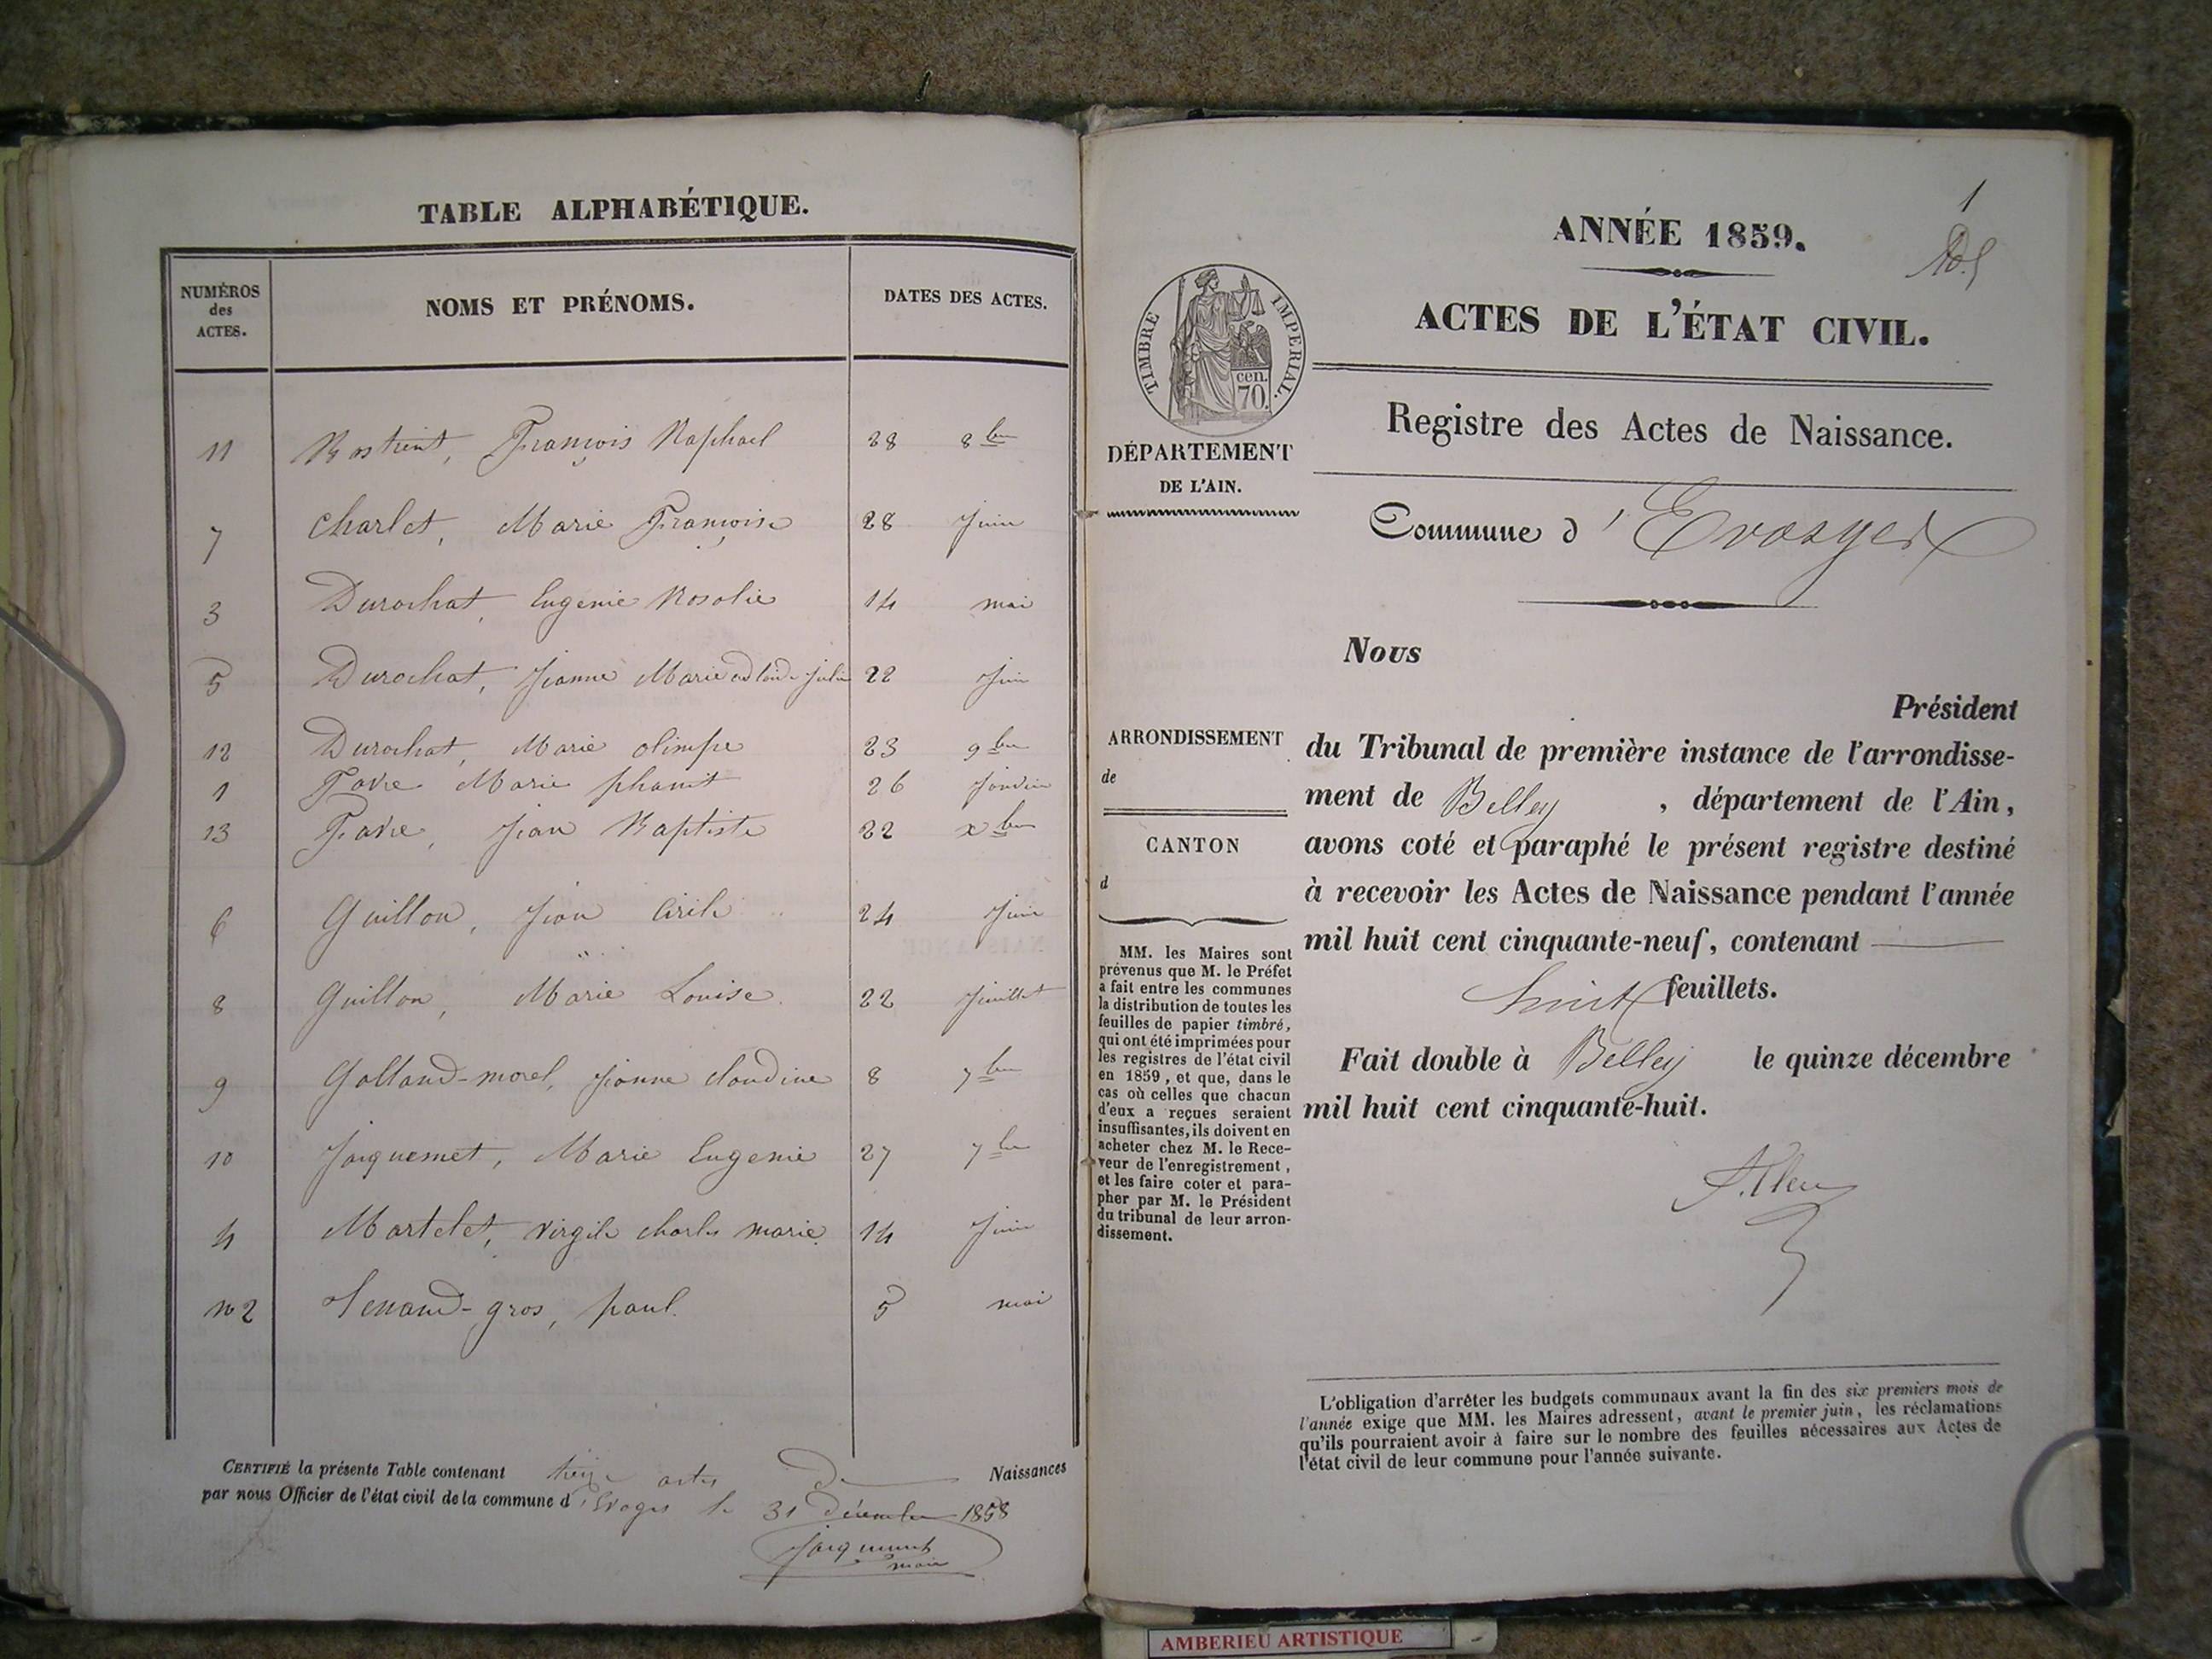 TABLE ALPHABÉTIQUE.
NUMÉROS des ACTES.
NOMS ET PRÉNOMS.
DATES DES ACTES.
11 François Raphael 28 8bre
7 Charlet, Marie Françoise 28 Juin
3 Durochat, Eugenie Rosalie 14 mai
5 Durochat, Jeanne Marie 22 Juin
12 Durochat, Marie olimpe 23 9bre
1 Favre Marie 26 Janvier
13 Favre, Jean Baptiste 22 xbre
6 Guillon, Jean Cirile 24 Juin
8 Guillon, Marie Louise 22 Juillet
9 Golland-morel, Jeanne claudine 8 7bre
10 Jacquemet, Marie Eugenie 27 7bre
4 Martelet, Virgile charles marie 14 Juin
2 gros, paul. 5 mai
CERTIFIÉ la présente Table contenant treize actes de Naissances
par nous Officier de l'état civil de la commune d'Evoges le 31 Décembre 1858
Jacquemet
maire
1
ANNÉE 1859.
ACTES DE L'ÉTAT CIVIL.
TIMBRE IMPERIAL.
cen.
70.
Registre des Actes de Naissance.
DÉPARTEMENT
DE L'AIN.
Commune d' Evosges
Nous
Président
ARRONDISSEMENT
de
CANTON
d
du Tribunal de première instance de l'arrondisse-
ment de Belley , département de l'Ain,
avons coté et paraphé le présent registre destiné
à recevoir les Actes de Naissance pendant l'année
mil huit cent cinquante-neuf, contenant
huit feuillets.
Fait double à Belley le quinze décembre
mil huit cent cinquante-huit.
MM. les Maires sont
prévenus que M. le Préfet
a fait entre les communes
la distribution de toutes les
feuilles de papier timbré,
qui ont été imprimées pour
les registres de l'état civil
en 1859, et que, dans le
cas où celles que chacun
d'eux a reçues seraient
insuffisantes, ils doivent en
acheter chez M. le Rece-
veur de l'enregistrement,
et les faire coter et para-
pher par M. le Président
du tribunal de leur arron-
dissement.
L'obligation d'arrêter les budgets communaux avant la fin des six premiers mois de
l'année exige que MM. les Maires adressent, avant le premier juin, les réclamations
qu'ils pourraient avoir à faire sur le nombre des feuilles nécessaires aux Actes de
l'état civil de leur commune pour l'année suivante.
AMBERIEU ARTISTIQUE